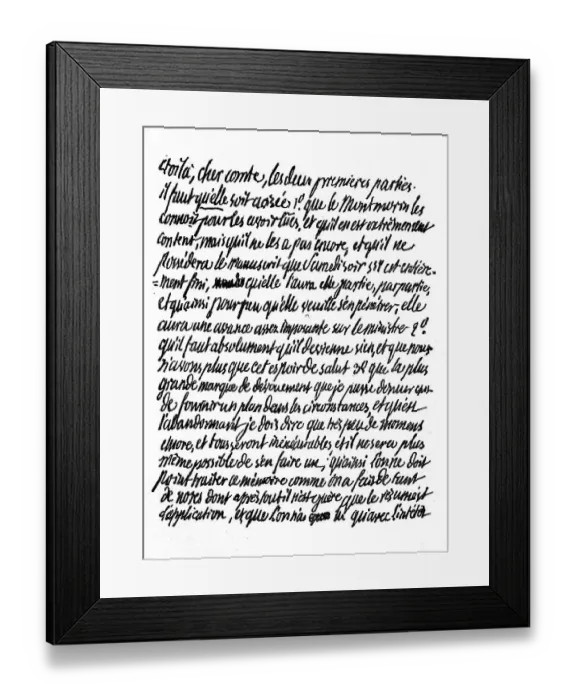 voilà, cher comte, les deux premieres parties.
il faut qu'elle soit avisée 1º. que le Montmorin les
connoit pour les avoir lües, et qu'il en est extrêmement
content, mais qu'il ne les a pas encore, et qu'il ne
possedera le manuscrit que Samedi soir s'il est entière-
=ment fini, qu'elle l'aura elle partie, par partie,
et qu'ainsi pour peu qu'elle veuille s'en pénétrer, elle
aura une avance assez imposante sur le ministre 2º.
qu'il faut absolument qu'il devienne sien, et que nous
n'avons plus que cet espoir de salut 3º que la plus
grande marque de devouement que je puisse donner
de fournir un plan dans les circonstances, et qu'en
l'abandonnant je dois dire que très peu de momens
encore, et tous seront inexécutables et il ne sera plus
même possible de s'en faire un; qu'ainsi l'on ne doit
point traiter ce mémoire comme on a fait de tant
de notes dont après tout il n'est guère que le résumé
d'application, et que l'on n'a lu qu'avec l'intérêt